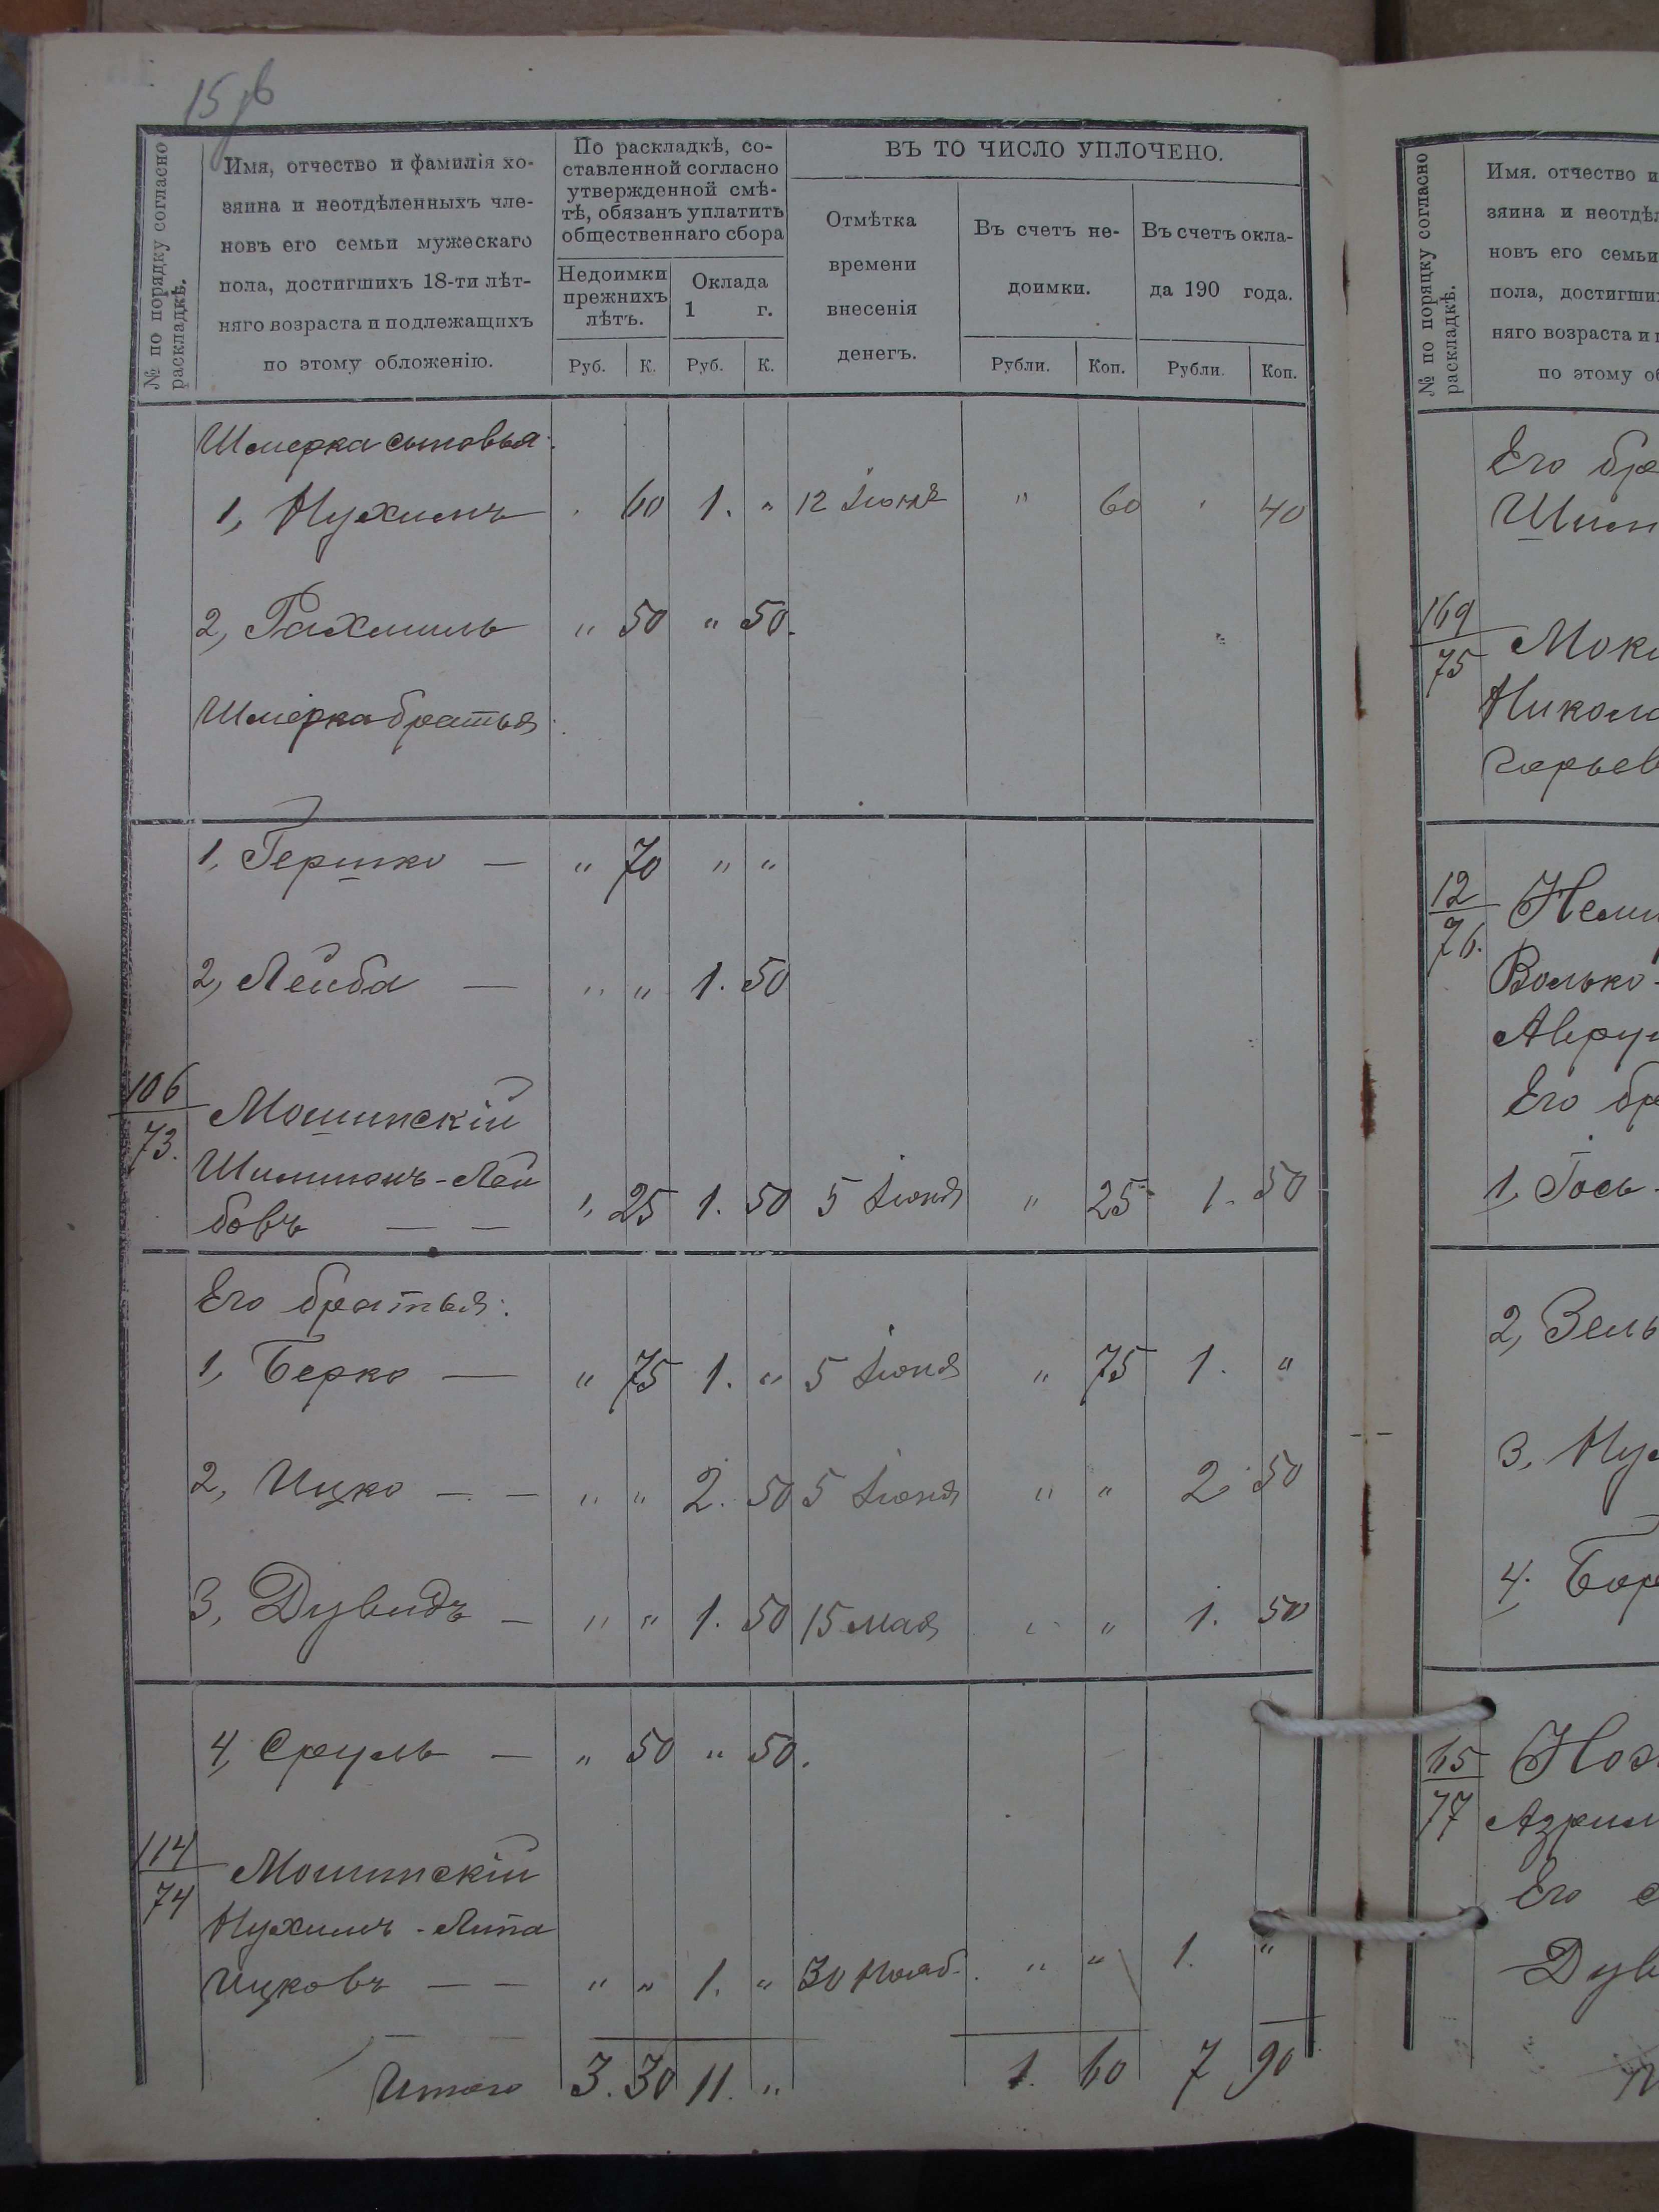 15 об
№ по порядку согласно раскладкѣ.
Имя, отчество и фамилія хо-
зяина и неотдѣленныхъ чле-
новъ его семьи мужескаго
пола, достигшихъ 18-ти лѣт-
няго возраста и подлежащихъ
по этому обложенію.
По раскладкѣ, со-
ставленной согласно
утвержденной смѣ-
тѣ, обязанъ уплатить
общественнаго сбора
Недоимки
прежнихъ
лѣтъ.
Оклада
1 г.
Руб. К. Руб. К.
ВЪ ТО ЧИСЛО УПЛОЧЕНО.
Отмѣтка
времени
внесенія
денегъ.
Въ счетъ не-
доимки.
Въ счетъ окла-
да 190 года.
Рубли. Коп. Рубли. Коп.
Шмерка сыновья:
1, Нухимъ " 60 1. " 12 Іюня " 60 " 40
2, Рахмиль " 50 " 50.
Шмерка братья:
1, Гершко — " 70 " "
2, Лейба — " " 1. 50
106
73.
Мошинскій
Шимшонъ-Лей
бовъ — — " 25 1. 50 5 Іюня " 25 1. 50
Его братья:
1, Берко — " 75 1. " 5 Іюня " 75 1. "
2, Ицко — — " " 2. 50 5 Іюня " " 2 50
3, Дувидъ — " " 1. 50 15 мая " " 1. 50
4, Сруль — " 50 " 50.
114
74
Мошинскій
Нухимъ-Липа
Ицковъ — — " " 1. " 30 Нояб. " " 1. "
Итого 3. 30 11. " 1. 60 7 90
№ по порядку согласно раскладкѣ.
Имя, отчество и
зяина и неотдѣл
новъ его семьи
пола, достигши
няго возраста и
по этому об
Его бра
Шим
169
75
Моки
Никола
Гарьев
12
76.
Неми
Волько-
Авру
Его бр
1, Іось-
2, Зель
3, Нух
4. Бер
65
77
Азрил
Его с
Дув